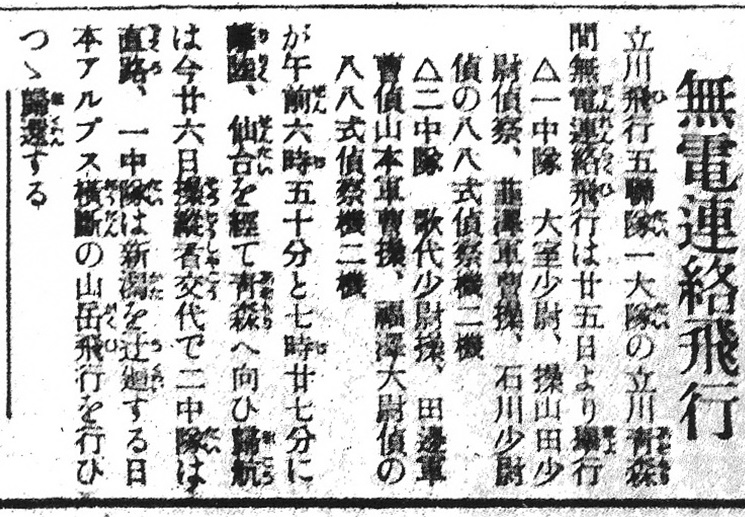 無電連絡飛行
立川飛行五聯隊一大隊の立川青森
間無電連絡飛行は廿五日より擧行
△一中隊　大室少尉、操山田少
尉偵察、韮澤軍曹操、石川少尉
偵の八八式偵察機二機
△二中隊　歌代少尉操、田邊軍
曹偵山本軍曹操、福澤大尉偵の
八八式偵察機二機
が午前六時五十分と七時廿七分に
離陸、仙台を經て青森へ向ひ歸航
は今廿六日操縱者交代で二中隊は
直路、一中隊は新潟を迂廻する日
本アルプス橫斷の山岳飛行を行ひ
つゝ歸還する